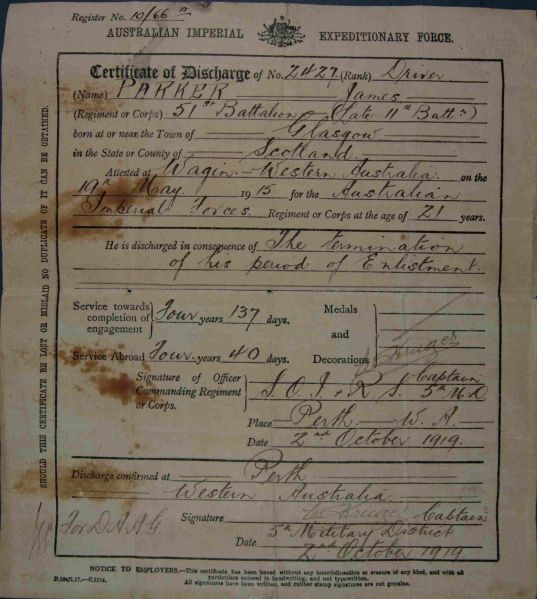 Register No. 10/66
AUSTRALIAN IMPERIAL EXPEDITIONARY FORCE.
Certificate of Discharge of No. 2427 (Rank) Driver.
(Name) PARKER James
(Regiment or Corps) 51st Battalion (Late 11th Battn)
born at or near the Town of Glasgow
in the State or County of Scotland.
Attested at Wagin - Western Australia. on the
19th May 1915 for the Australian
Imperial Forces. Regiment or Corps at the age of 21 years.
He is discharged in consequence of The termination
of his period of Enlistment.
Service towards completion of engagement } Four years 137 days.
Medals and Decorations
Service Abroad Four years 40 days.
Signature of Officer Commanding Regiment or Corps. Captain
S.O.I. & R.S. 5th M.D.
Place Perth W.A.
Date 2nd October 1919.
Discharge confirmed at Perth
Western Australia.
For D A A G
Signature Captain
5th Military District
Date 2nd October 1919.
NOTICE TO EMPLOYERS.—This certificate has been issued without any interlineation or erasure of any kind, and with all
particulars entered in handwriting, and not typewritten.
All signatures have been written, and rubber stamp signatures are not genuine.
D.184/2.17.—C.1514.
SHOULD THIS CERTIFICATE BE LOST OR MISLAID NO DUPLICATE OF IT CAN BE OBTAINED.